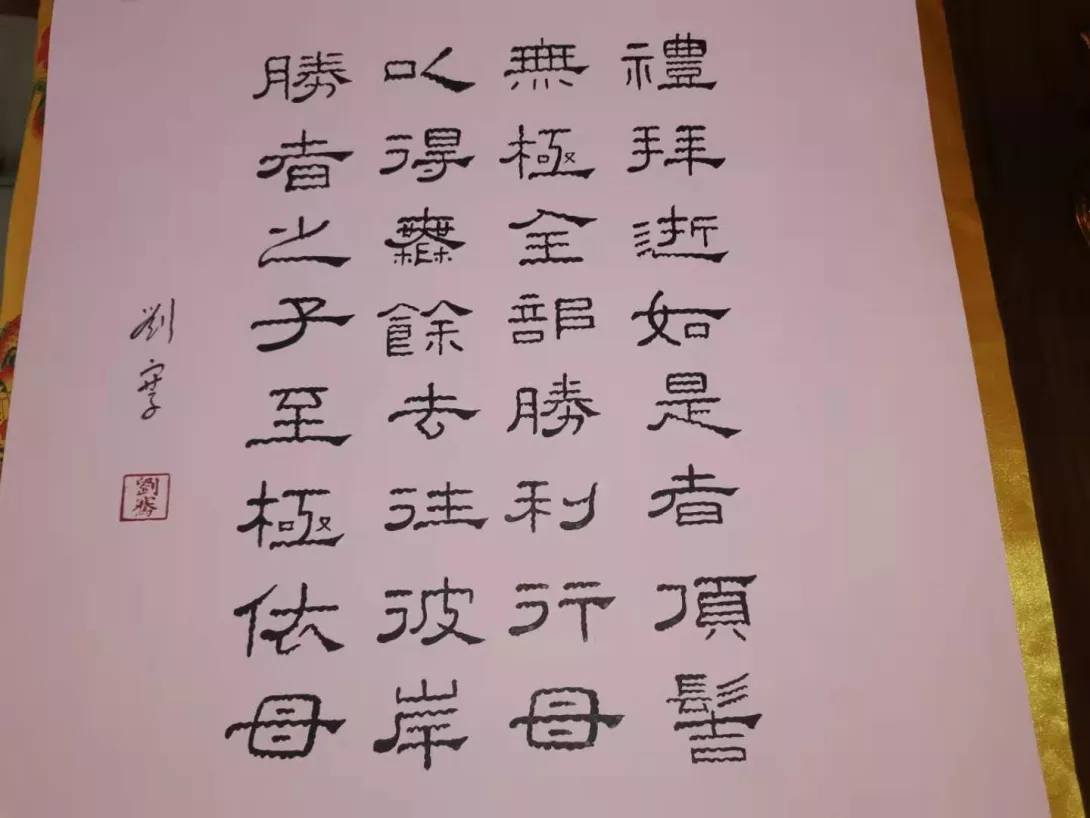 禮拜逝如是者頂髻
無極全部勝利行母
以得無餘去往彼岸
勝者之子至極依母
劉
劉